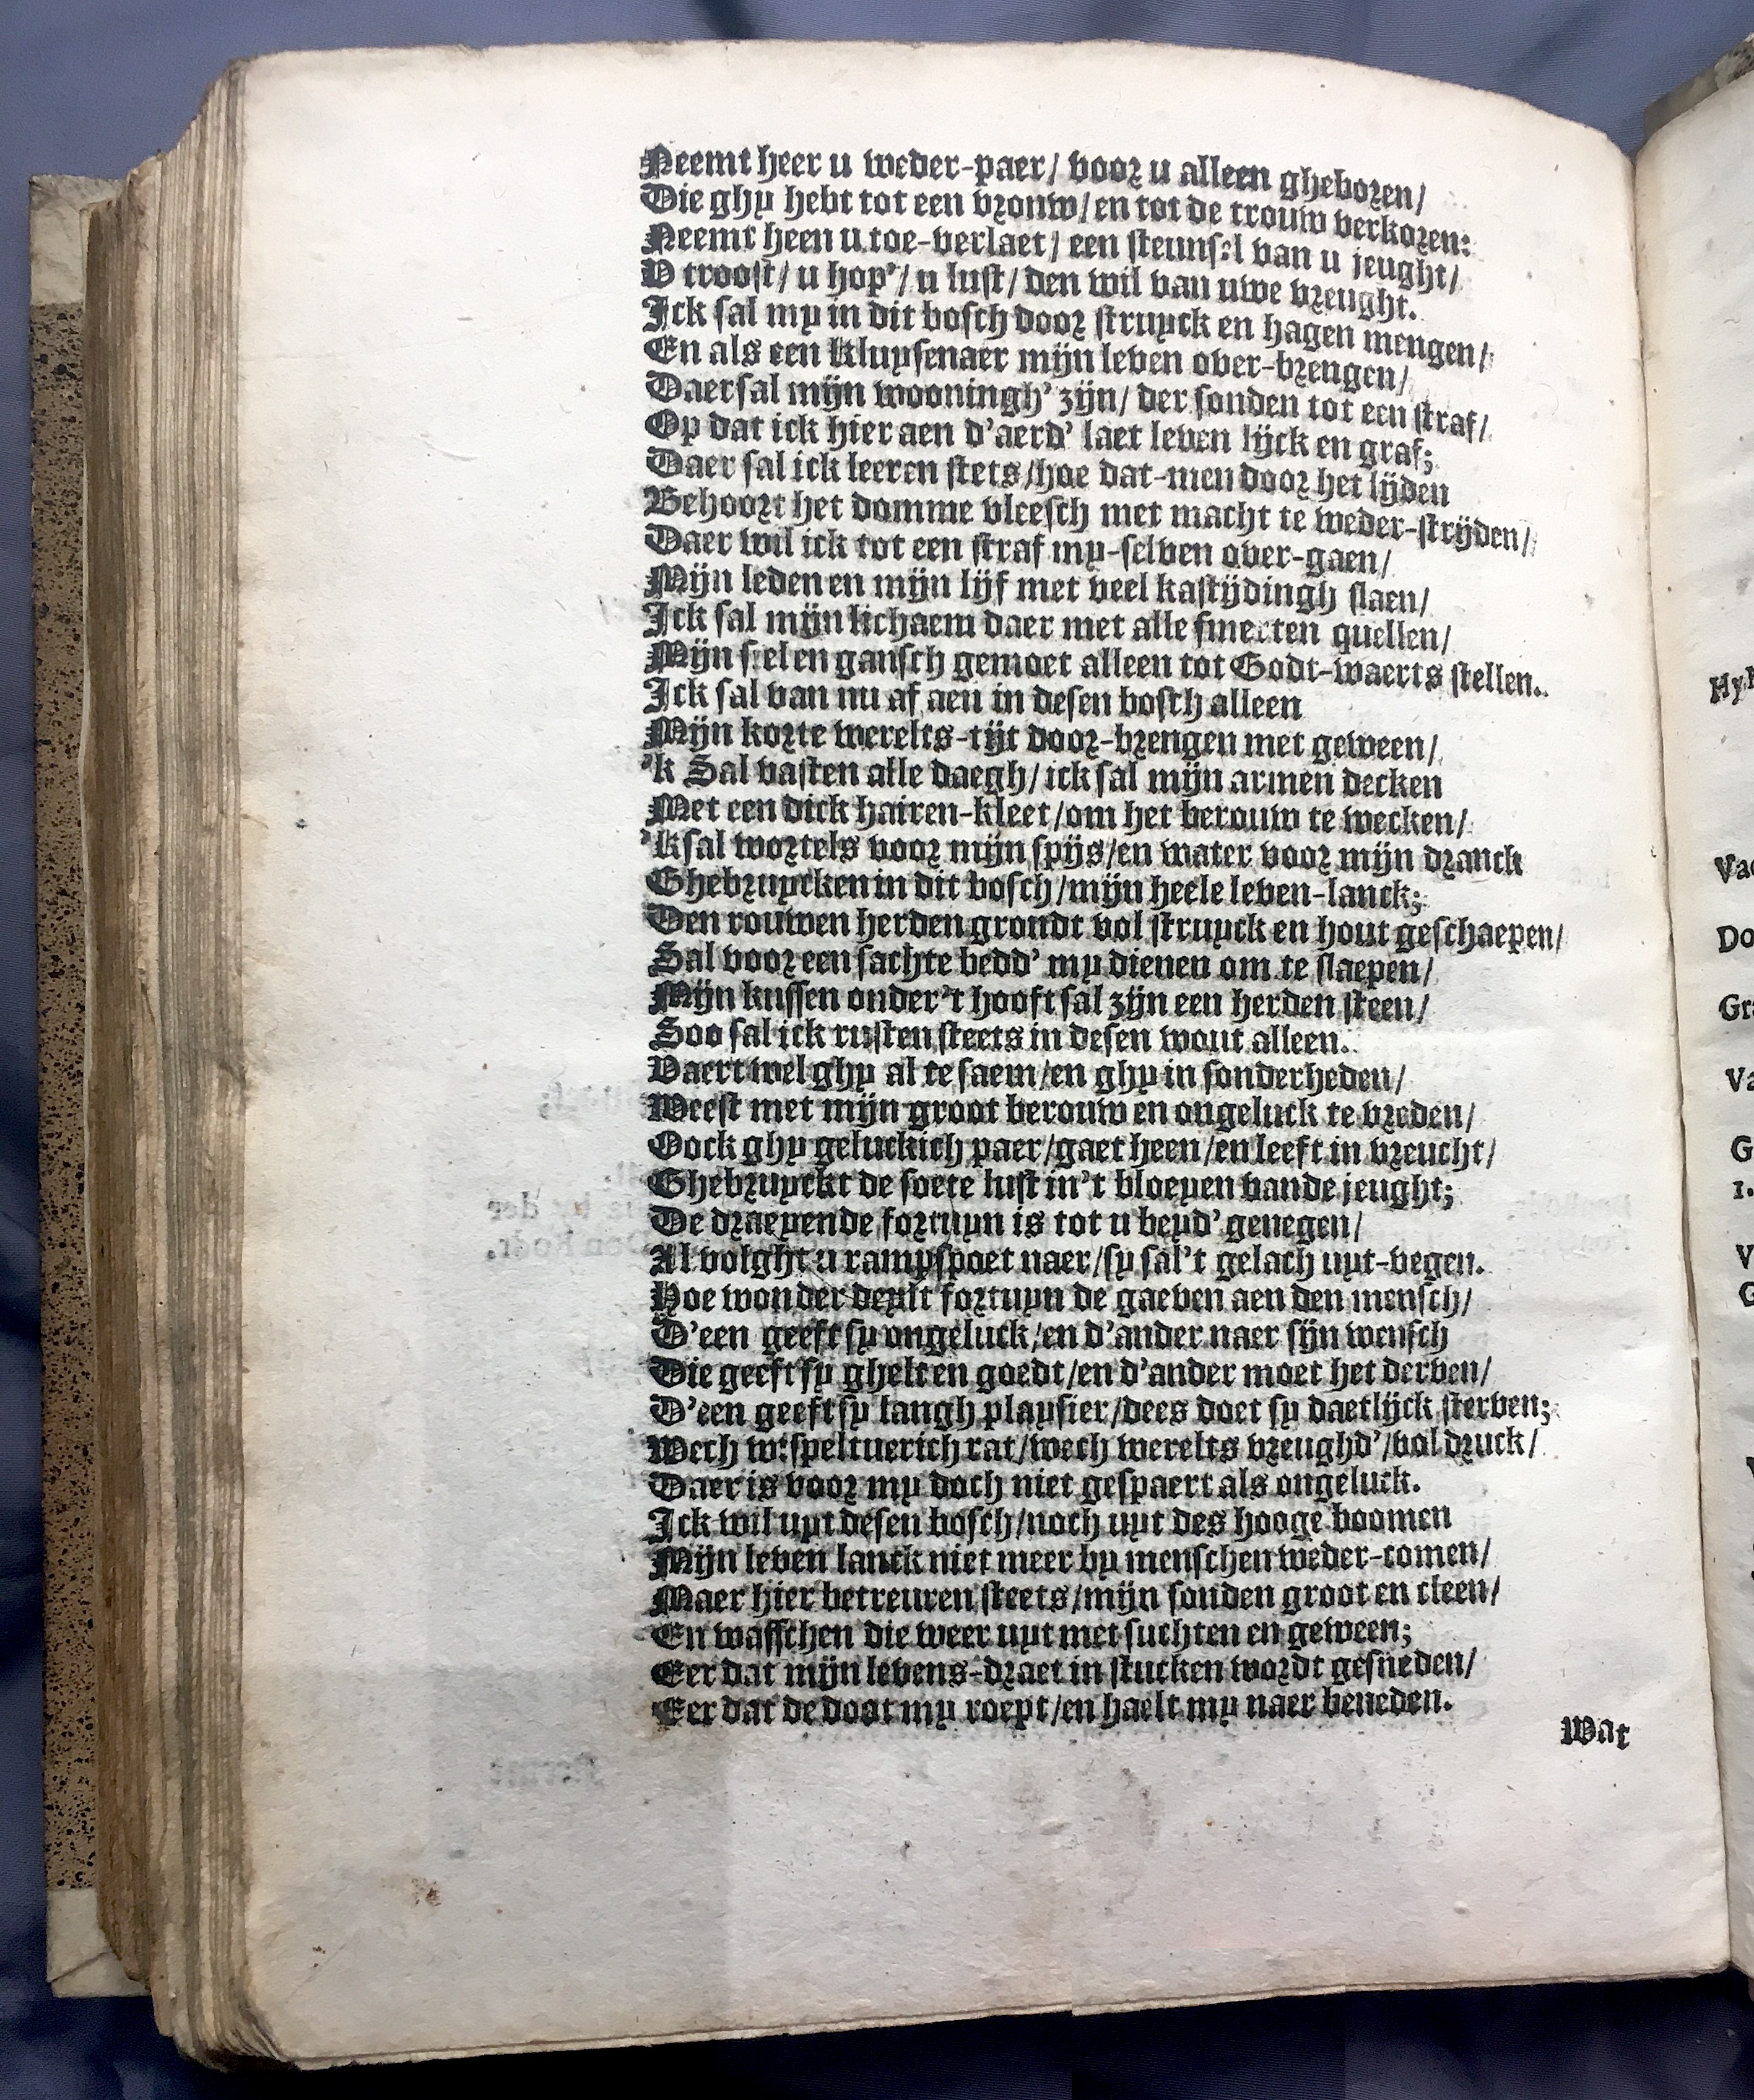 Neemt heer u weder-paer/ voor u alleen gheboren/
Die ghy hebt tot een vrouw/ en tot de trouw verkoren:
Neemt heen u toe-verlaet/ een steunsel van u jeught/
V troost/ u hop'/ u lust/ den wil van uwe vreught.
Ick sal my in dit bosch door struyck en hagen mengen/
En als een kluysenaer mijn leven over-brengen/
Daer sal mijn wooningh' zijn/ der sonden tot een straf/
Op dat ick hier aen d'aerd' laet leven lijck en graf;
Daer sal ick leeren stets/ hoe dat-men door het lijden
Behoort het domme vleesch met macht te weder-strijden/
Daer wil ick tot een straf my-selven over-gaen/
Mijn leden en mijn lijf met veel kastijdingh slaen/
Ick sal mijn lichaem daer met alle smerten quellen/
Mijn siel en gansch gemoet alleen tot Godt-waerts stellen.
Ick sal van nu af aen in desen bosch alleen
Mijn korte werelts-tijt door-brengen met geween/
'k Sal vasten alle daegh/ ick sal mijn armen decken
Met een dick hairen-kleet/ om het berouw te wecken/
'k sal wortels voor mijn spijs/ en water voor mijn dranck
Ghebruycken in dit bosch/ mijn heele leven-lanck;
Den rouwen herden grondt vol struyck en hout geschaepen/
Sal voor een sachte bedd' my dienen om te slaepen/
Mijn kussen onder't hooft sal zijn een herden steen/
Soo sal ick rusten steets in desen wout alleen.
Vaert wel ghy al te saem/ en ghy in sonderheden/
Weest met mijn groot berouw en ongeluck te vreden/
Oock ghy geluckich paer/ gaet heen/ en leeft in vreucht/
Ghebruyckt de soete lust in't bloeyen vande jeught;
De draeyende fortuyn is tot u beyd' genegen/
Al volght u rampspoet naer/ sy sal't gelach uyt-vegen.
Hoe wonder deylt fortuyn de gaeven aen den mensch/
D'een geeft sy ongeluck/ en d'ander naer sijn wensch
Die geeft sy ghelt en goedt/ en d'ander moet het derven/
D'een geeft sy langh playsier/ dees doet sy daetlijck sterven;
Wech wispeltuerich rat/ wech werelts vreughd'/ vol druck/
Daer is voor my doch niet gespaert als ongeluck.
Ick wil uyt desen bosch/ noch uyt des hooge boomen
Mijn leven lanck niet meer by menschen weder-comen/
Maer hier betreuren steets/ mijn sonden groot en cleen/
En wasschen die weer uyt met suchten en geween;
Eer dat mijn levens-draet in stucken wordt gesneden/
Eer dat de doot my roept/ en haelt my naer beneden.
Wat
Hy
Va
Do
Gr
Va
G
1.
V
G